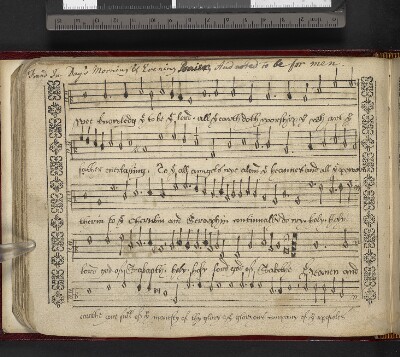 Found In Day's Morning & Evening Service, And noted to be for men.
wee knowledg yͤ to be yͤ lord. all yͤ earth doth worship yͤ yͤ
father everlasting. To yͤ all angels cry aloud yͤ heavens and all yͤ powers
therein to yͤ Cherubin and Seraphin continually do cry holy holy
lord god of Sabaoth. holy holy lord god of Sabaoth Heaven and
earth are full of yͤ majesty of thy glory yͤ glorious company of yͤ apostels